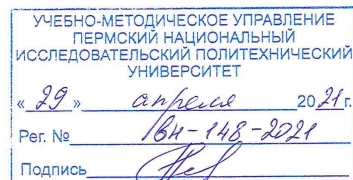 УЧЕБНО-МЕТОДИЧЕСКОЕ УПРАВЛЕНИЕ
ПЕРМСКИЙ НАЦИОНАЛЬНЫЙ
ИССЛЕДОВАТЕЛЬСКИЙ ПОЛИТЕХНИЧЕСКИЙ
УНИВЕРСИТЕТ
« 29 » апреля 2021 г.
Рег. № вн-148-2021
Подпись